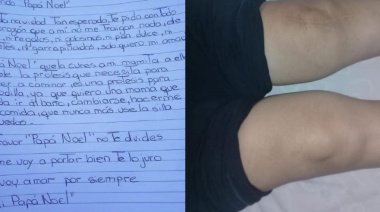 do Papá Noel"
navidad Tan esperada, Te pido con todo
corazon que a mí no me Traigan nada, de
regalos, ni golosinas, ni pan dulce, ni
garrapiñados, solo quiero mi
Noel" que la cures a mi mamita a ella
le la prótesis que necesita para
er a caminar, es una protesis para
dilla, ya que quiero una mama que
da ir al baño, cambiarse, hacerme
comida, que nunca más use la silla
ruedas.
favor "Papá Noel" no Te olvides
me voy a portar bien Te lo juro
voy amar por siempre
Papá Noel"